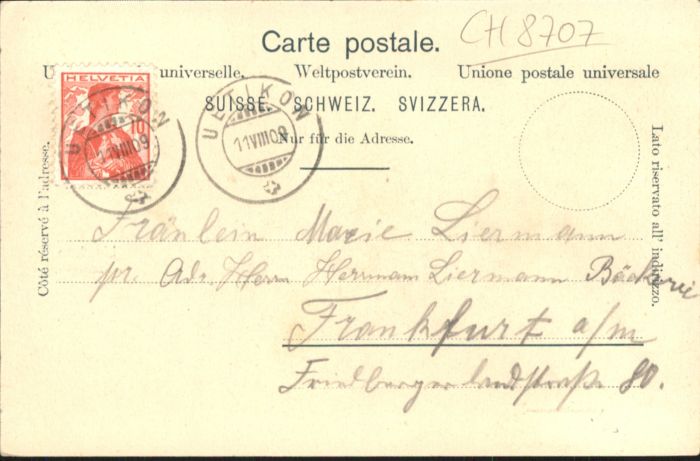 CH 8707
Carte postale.
Union postale universelle. Weltpostverein. Unione postale universale
SUISSE. SCHWEIZ. SVIZZERA.
Nur für die Adresse.
Côté réservé à l'adresse.
Lato riservato all' indirizzo.
HELVETIA
10
UETIKON
11VIII09
UETIKON
11VIII09
Fräulein Marie Liermann
pr. Adr. Herrn Herrmann Liermann Bäckerei
Frankfurt a/m
Friedberger landstraße 80.